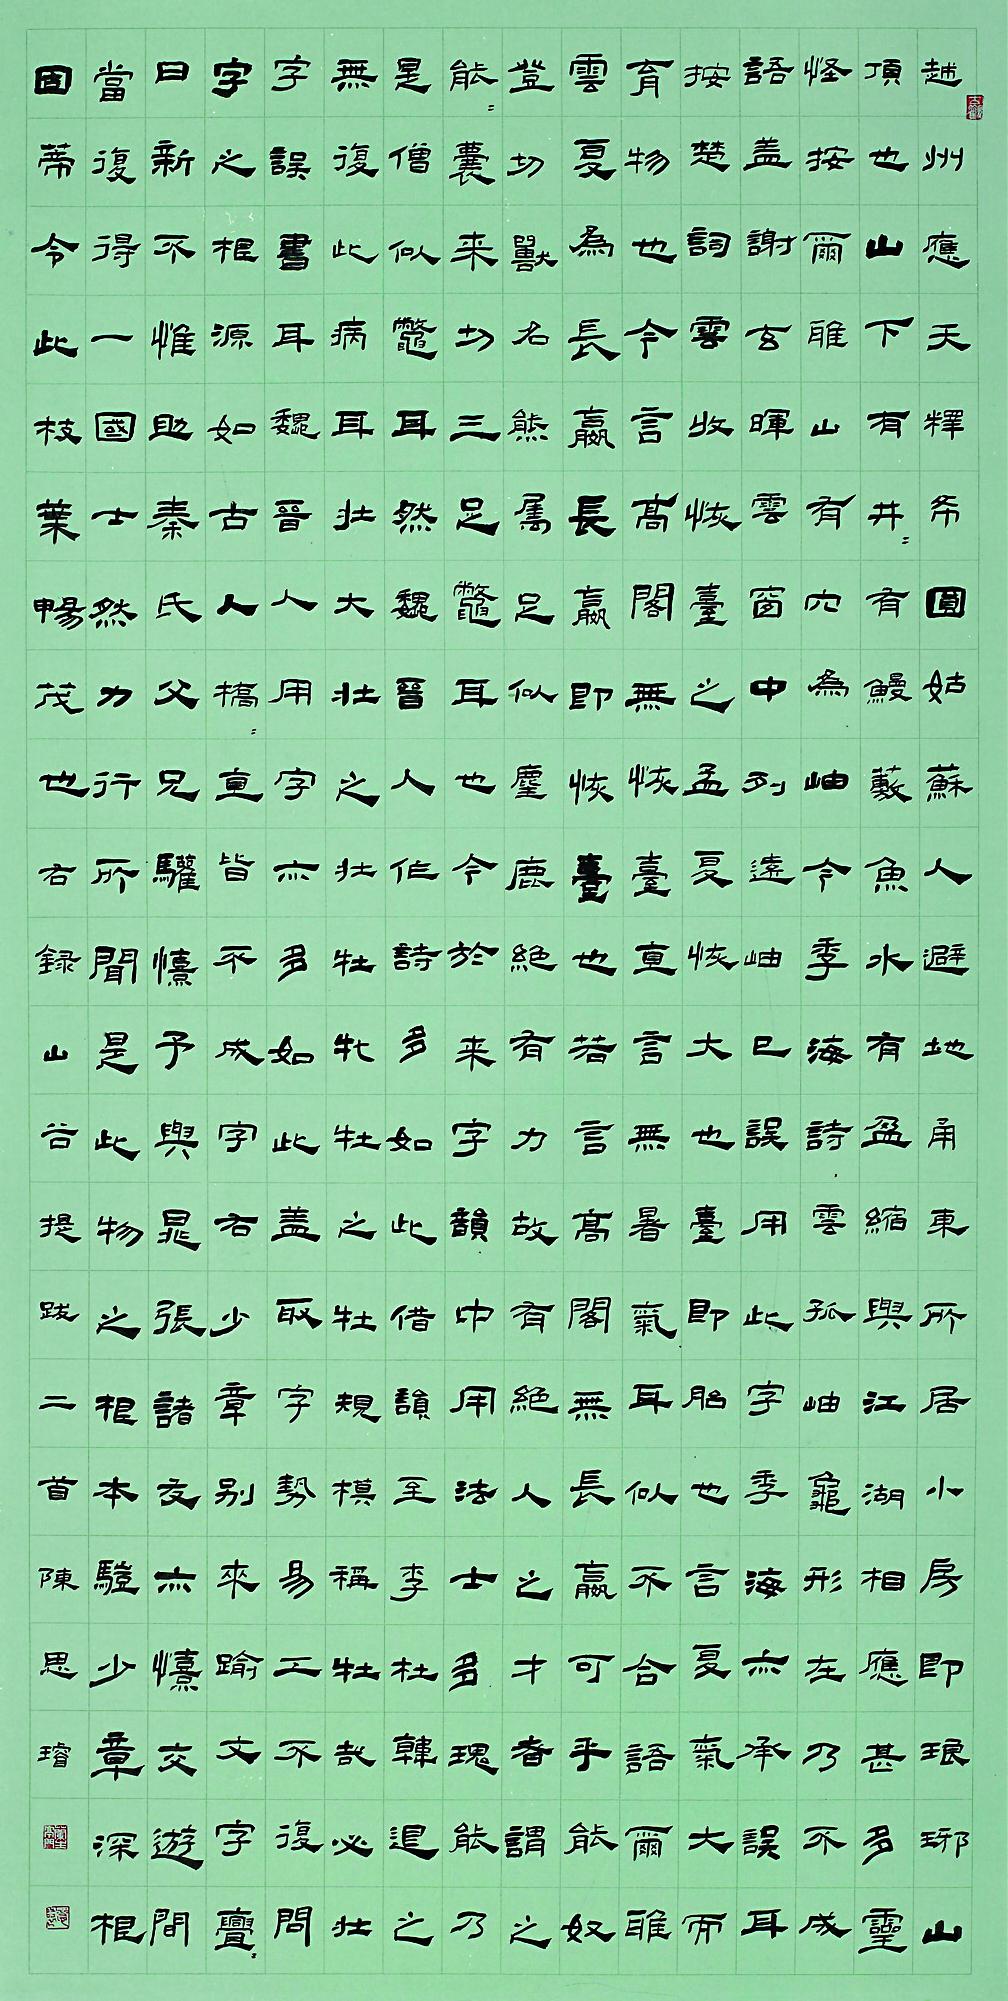 越州應天釋希圓姑蘇人避地甬東所居小房即琅琊山
頂也山下有井〻有鰻薮魚水有盈縮與江湖相應甚多靈
怪按爾雅山有穴為岫今季海詩雲孤岫龜形在乃不成
語盖謝玄暉雲窗中列遠岫已誤用此字季海亦承誤耳
按楚詞雲收恢臺之孟夏恢大也臺即胎也言夏氣大而
育物也今言髙閣無恢臺直言無暑氣耳似不合語爾雅
雲夏為長嬴長嬴即恢臺也若言髙閣無長嬴可乎能奴
登切獸名熊属足似麈鹿絶有力故有絶人之才者謂之
能〻囊来切三足鼈耳也今於来字韻中用法士多瑰能乃
是僧似鼈耳然魏晉人作詩多如此借韻至李杜韓退之
無復此病耳壯大壯之壯牡牝牡之牡規模稱牡哉必壯
字誤書耳魏晉人用字亦多如此盖取字勢易工不復問
字之根源如古人槁〻直皆不成字右少章別來踰文字亹〻
日新不惟助秦氏父兄驩憙予與晁張諸友亦憙交遊間
當復得一國士然力行所聞是此物之根本驗少章深根
固蒂令此枝葉暢茂也右録山谷提跋二首陳思璿